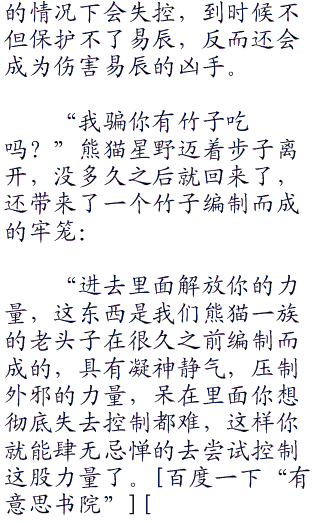 的情况下会失控，到时候不
但保护不了易辰，反而还会
成为伤害易辰的凶手。
“我骗你有竹子吃
吗？”熊猫星野迈着步子离
开，没多久之后就回来了，
还带来了一个竹子编制而成
的牢笼：
“进去里面解放你的力
量，这东西是我们熊猫一族
的老头子在很久之前编制而
成的，具有凝神静气，压制
外邪的力量，呆在里面你想
彻底失去控制都难，这样你
就能肆无忌惮的去尝试控制
这股力量了。[百度一下“有
意思书院”][